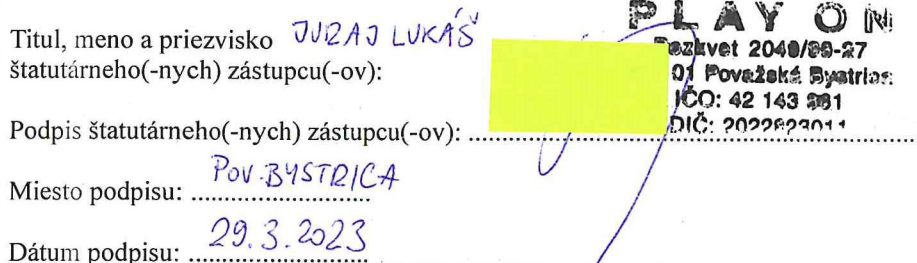 Titul, meno a priezvisko JURAJ LUKÁŠ
štatutárneho(-nych) zástupcu(-ov):
PLAY ON
Rozkvet 2040/99-27
01 Považská Bystrica
IČO: 42 143 981
DIČ: 2022823011
Podpis štatutárneho(-nych) zástupcu(-ov):
Miesto podpisu: POV. BYSTRICA
Dátum podpisu: 29.3.2023